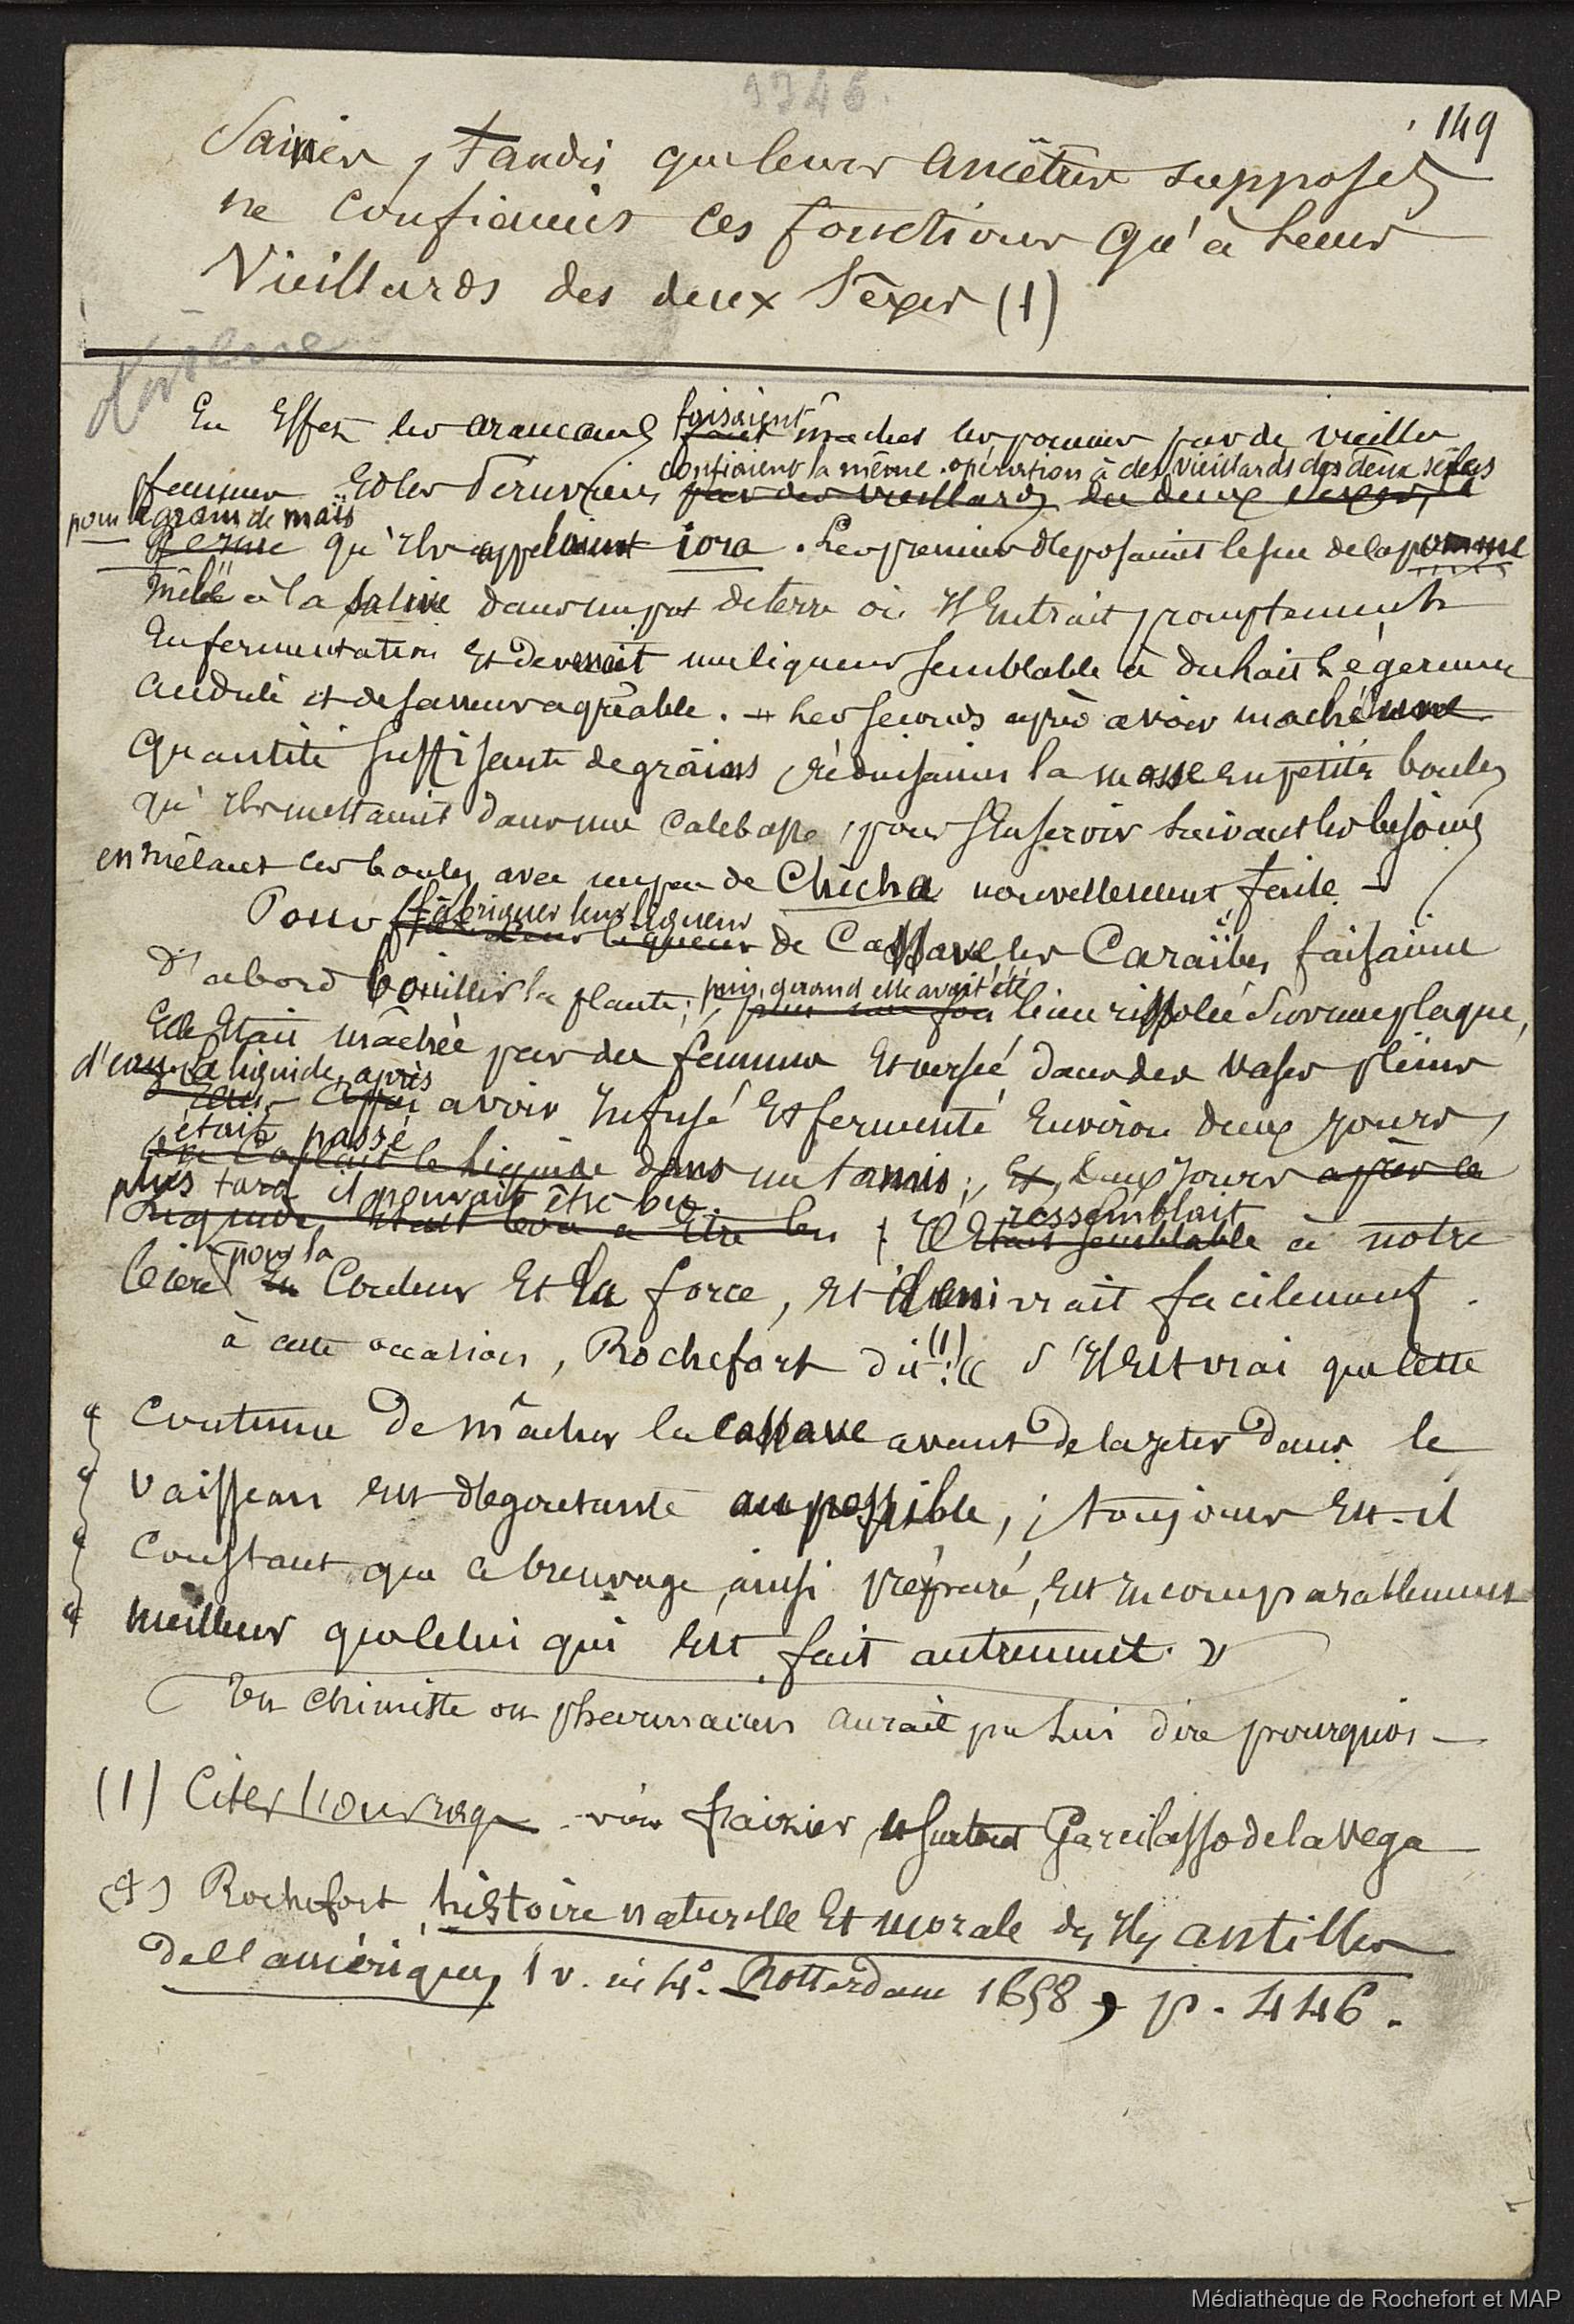 1746.
149
Saines, Tandis que leurs Ancêtres supposés
ne confiaient ces fonctions qu'à leurs
Vieillards des deux sexes (1)
En Effet les araucans faisaient mâcher les pommes par de vieilles
confiaient la même opération à des vieillards des deux sexes
femmes Et les Peruviens par des vieillards des deux sexes, le
pour le grain de maïs
qu'ils appelaient iora. Les premiers déposaient le suc de la pomme
mêlé à la salive dans un pot de terre où il Entrait promptement
En fermentation Et devenait une liqueur semblable à du lait Légèrement
acidulé et de saveur agréable. Les seconds après avoir maché une
quantité suffisante de grains, réduisaient la masse en petites boules
qu'ils mettaient dans une calebasse, pour s'En servir suivant les besoins
en mêlant ces boules avec un peu de Chicha nouvellement faite -
fabriquer leur liqueur
Pour faire leur liqueur de Cassave, les Caraïbes faisaient
puis, quand elle avait été
d'abord bouillir la plante; puis une fois bien rissolée sur une plaque,
Elle Etait mâchée par des femmes Et versée dans des vases pleins
d'eau. Le liquide, après
avoir Infusé Et fermenté Environ deux jours,
était passé
on coulait le liquide dans un tamis; Et, deux jours après le
plus tard il pouvait être bu.
liquide, Etait bon à Etre bu;
ressemblait
Il Etait semblable à notre
pour la
bière en Couleur Et la force, Et il enivrait facilement.
à cette occasion, Rochefort dit (1): « S'il Est vrai que cette
« coutume de mâcher la cassave avant de la jeter dans le
« vaisseau Est dégoutante au possible, ; toujours Est-il
« constant que ce breuvage, ainsi préparé, Est Incomparablement
« meilleur que celui qui Est fait autrement. »
Un chimiste ou pharmacien aurait pu lui dire pourquoi -
(1) Citer l'ouvrage - voir fraizier et surtout Garcilasso de la Vega
(1) Rochefort, histoire naturelle Et morale des Iles antilles
de l'amérique, 1 v. in 4º. Rotterdam 1658, p. 446.
Médiathèque de Rochefort et MAP